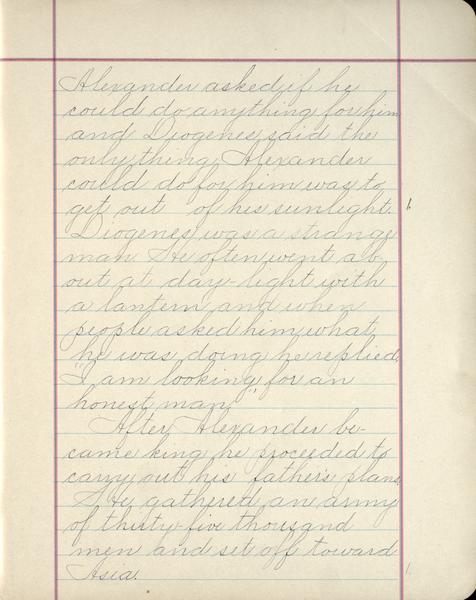 Alexander asked if he
could do anything for him
and Diogenes said the
only thing Alexander
could do for him was to
get out of his sunlight.
Diogenes was a strange
man. He often went ab-
out at day-light with
a lantern and when
people asked him what
he was doing he replied,
"I am looking for an
honest man."
After Alexander be-
came king he proceeded to
carry out his father's plans.
He gathered an army
of thirty-five thousand
men and set off toward
Asia.